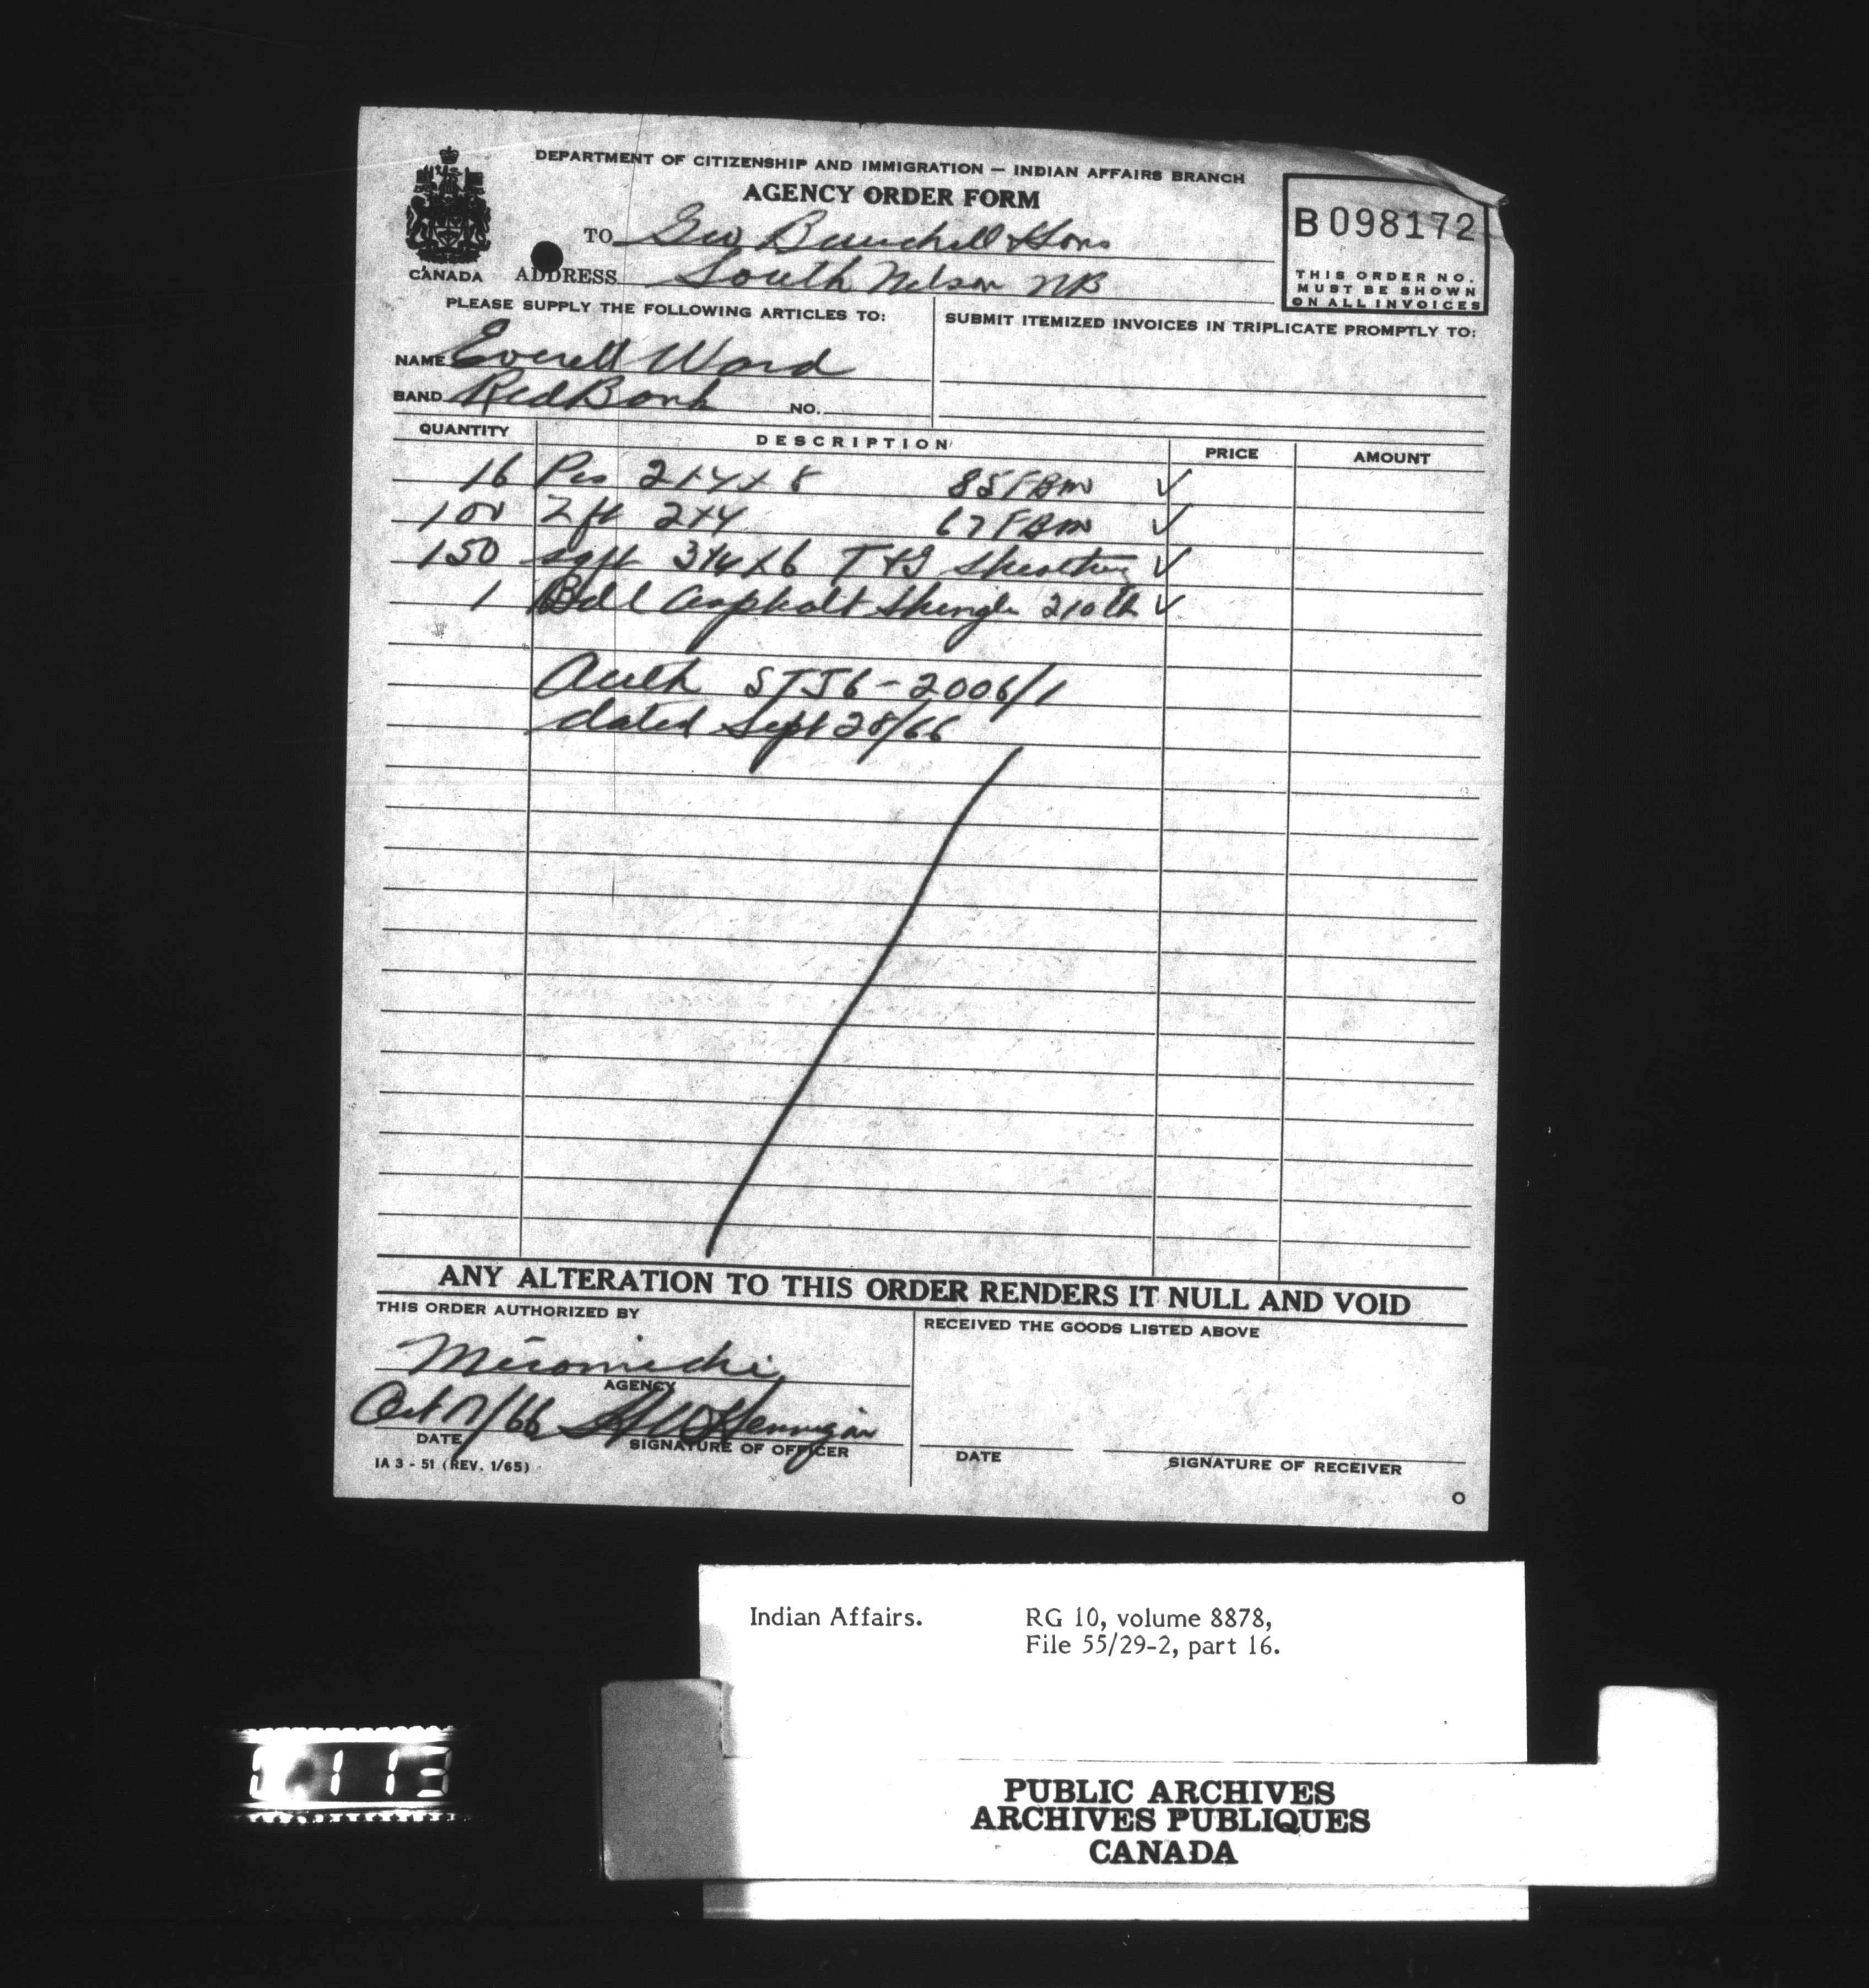 DEPARTMENT OF CITIZENSHIP AND IMMIGRATION — INDIAN AFFAIRS BRANCH
AGENCY ORDER FORM
B098172
THIS ORDER NO.
MUST BE SHOWN
ON ALL INVOICES
CANADA
TO Geo Burchill & Sons
ADDRESS South Nelson NB
PLEASE SUPPLY THE FOLLOWING ARTICLES TO:
SUBMIT ITEMIZED INVOICES IN TRIPLICATE PROMPTLY TO:
NAME Everett Ward
BAND Red Bank NO.
QUANTITY DESCRIPTION PRICE AMOUNT
16 Pcs 2x4x8 85 FBM ✓
100 L ft 2x4 67 FBM ✓
150 sq ft 3/4x6 T&G Sheathing ✓
1 Bdl Asphalt Shingle 210 lb ✓
Auth STJ6-2006/1
dated Sept 28/66
ANY ALTERATION TO THIS ORDER RENDERS IT NULL AND VOID
THIS ORDER AUTHORIZED BY
RECEIVED THE GOODS LISTED ABOVE
Miramichi
AGENCY
Oct /66
DATE SIGNATURE OF OFFICER
DATE SIGNATURE OF RECEIVER
IA 3 - 51 (REV. 1/65)
O
Indian Affairs. RG 10, volume 8878,
File 55/29-2, part 16.
113
PUBLIC ARCHIVES
ARCHIVES PUBLIQUES
CANADA